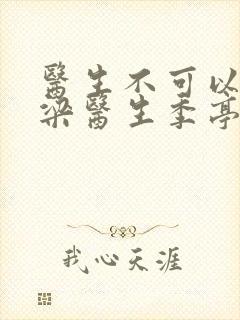 醫生不可以
梁醫生季亭
我心天涯